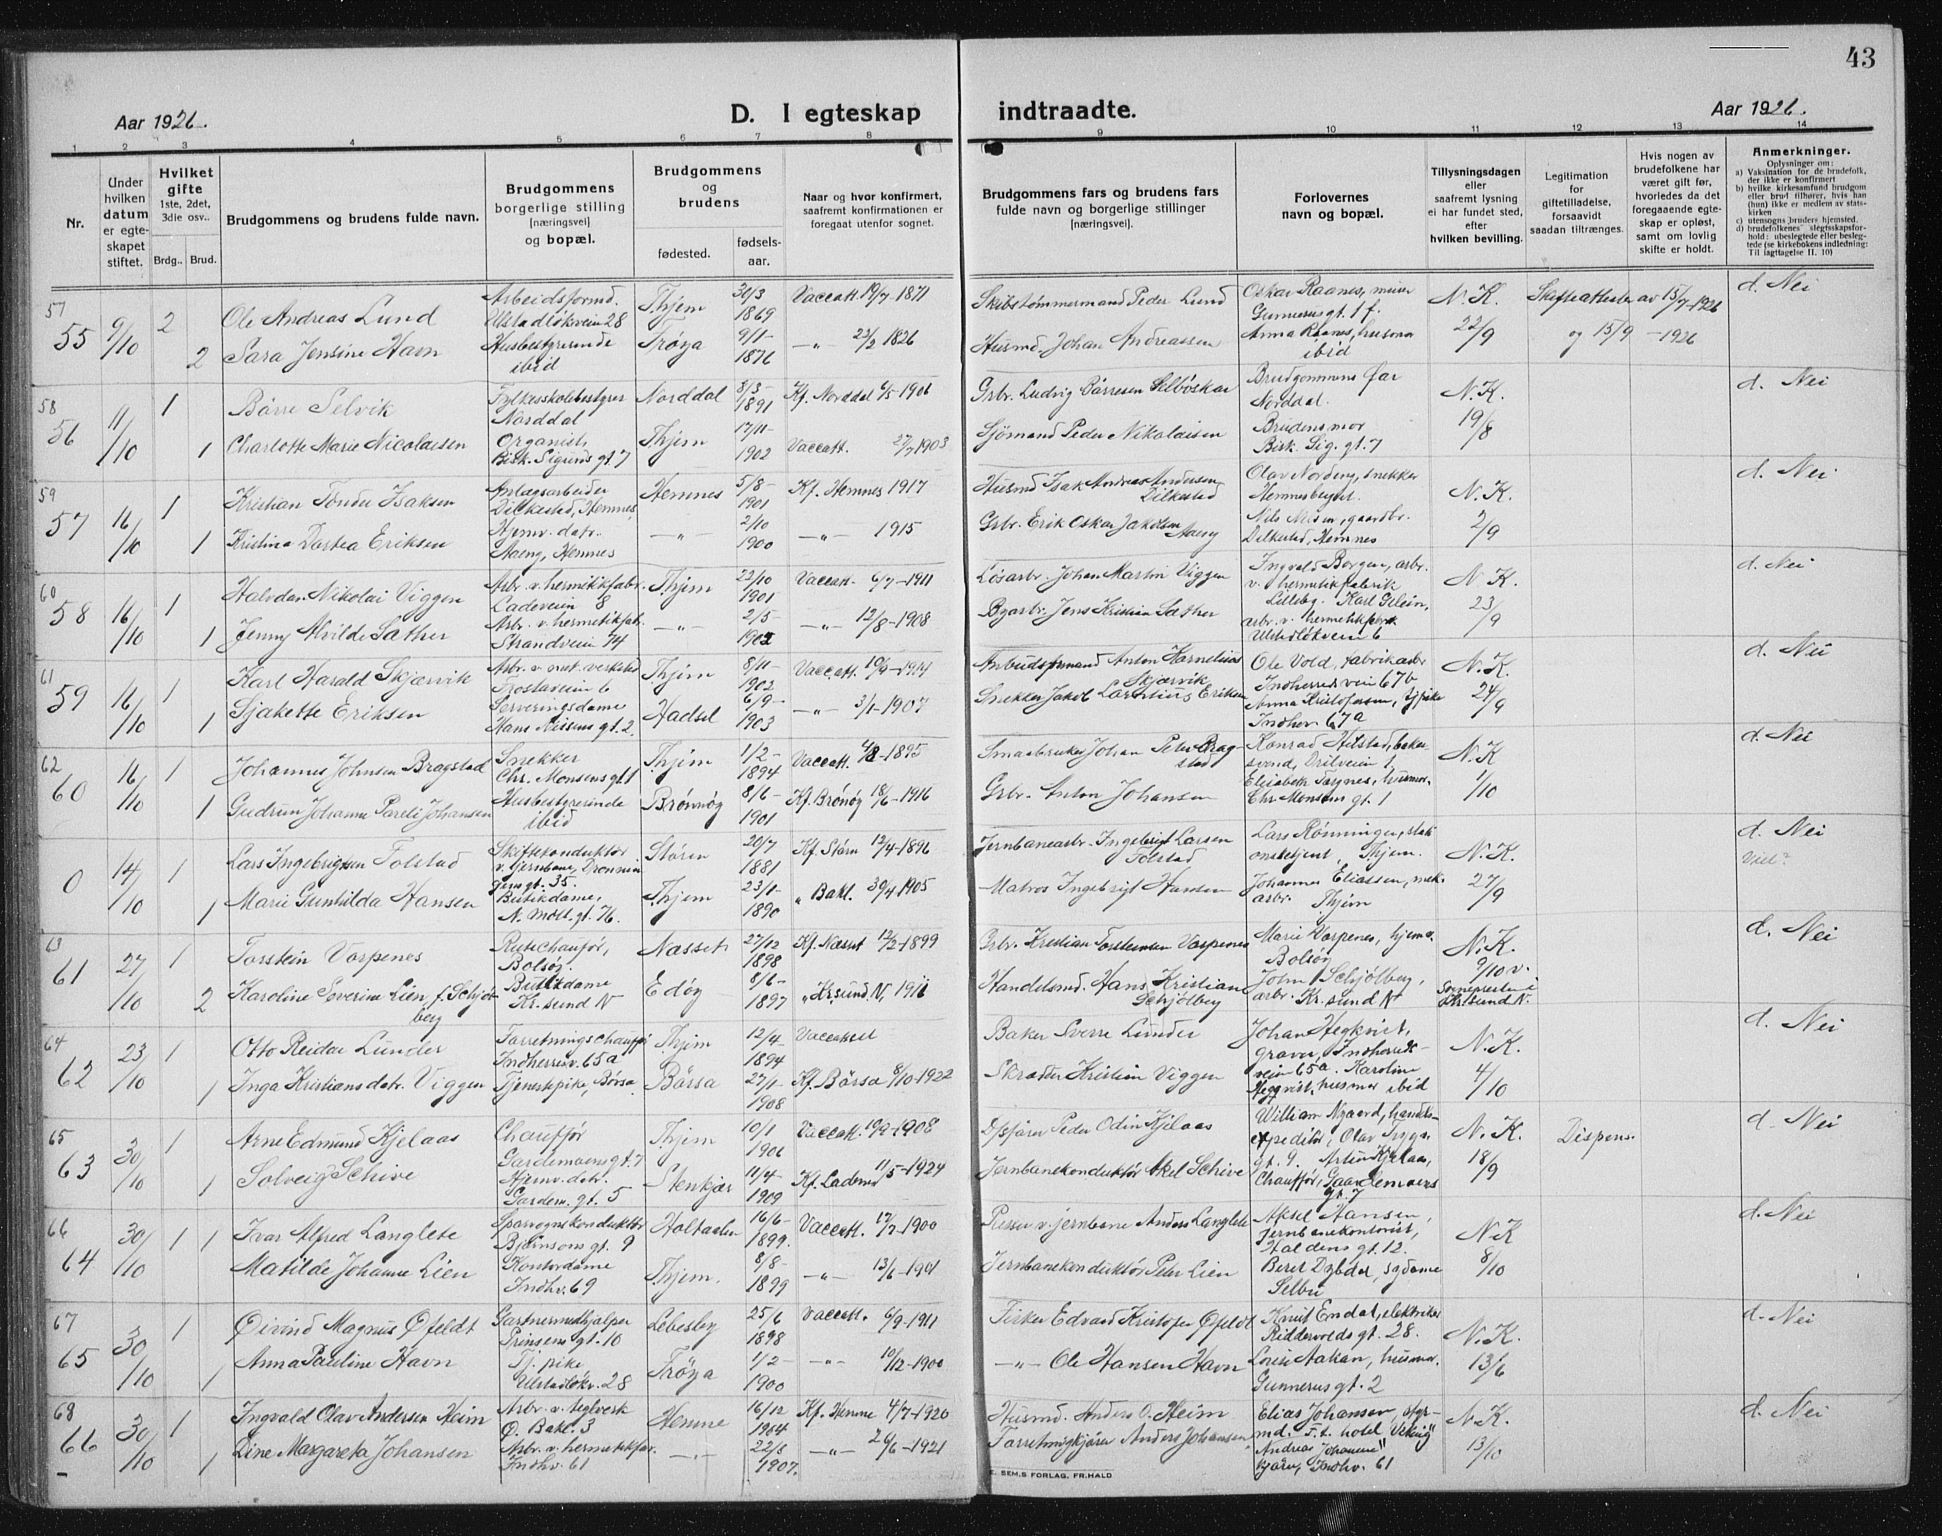 43
Aar 1926.
D. I egteskap
indtraadte.
Aar 1926.
1 2 3 4 5 6 7 8 9 10 11 12 13 14
Nr.
Under hvilken datum er egteskapet stiftet.
Hvilket gifte 1ste, 2det, 3die osv..
Brdg.. Brud.
Brudgommens og brudens fulde navn.
Brudgommens borgerlige stilling (næringsvei) og bopæl.
Brudgommens og brudens
fødested.
fødsels-aar.
Naar og hvor konfirmert, saafremt konfirmationen er foregaat utenfor sognet.
Brudgommens fars og brudens fars fulde navn og borgerlige stillinger (næringsvei).
Forlovernes navn og bopæl.
Tillysningsdagen eller saafremt lysning ei har fundet sted, efter hvilken bevilling.
Legitimation for giftetilladelse, forsaavidt saadan tiltrænges.
Hvis nogen av brudefolkene har været gift før, hvorledes da det foregaaende egteskap er opløst, samt om lovlig skifte er holdt.
Anmerkninger.
Oplysninger om:
a) Vaksination for de brudefolk, der ikke er konfirmert
b) hvilke kirkesamfund brudgom eller brud tilhører, hvis han (hun) ikke er medlem av statskirken
c) utensogns bruders hjemsted.
d) brudefolkenes slegtsskapsforhold: ubeslegtede eller beslegtede (se kirkebokens indledning: Til iagttagelse II. 10)
57
55 9/10 2 Ole Andreas Lund Arbeidsformd. Ulstadløkveien 28 Thjem 30/3 1869 Vaccatt. 19/7-1871 Skibstømmermand Peder Lund Oskar Raanes, murer Gunnerus gt. 1 f. N.K. 22/9 Skifteattester av 15/7-1926 d. Nei
2 Sara Jensine Havn Husbestyrerinde ibid Frøya 9/1- 1876 -"- Husmd. Johan Andreassen Anna Raanes, husmor ibid og 15/9 -1926
58
56 11/10 1 Børre Selvik Fylkesskolebestyrer Norddal Norddal 8/3- 1891 Kf. Norddal 6/5-1906 Grbr. Ludvig Børresen Selboskar Brudgommens far Norddal. N.K. 19/8 d. Nei
1 Charlotte Marie Nicolaisen Organist, Bisk. Sigurds gt. 7 Thjem 17/11- 1902 Vaccatt. 27/7 1903 Sjømand Peder Nikolaisen Brudens mor Bisk. Sig. gt. 7
59
57 16/10 1 Kristian Tønder Isaksen Anlægsarbeider Dilkestad, Hemnes Hemnes 5/8- 1901 Kf. Hemnes 1917 Husmd Isak Andreas Andersen Dilkestad Olav Nordeng, snekker Hemnesberget. N.K. 2/9 d. Nei
1 Kristina Dortea Eriksen Hjemv. datr. Aaeng, Hemnes -"- 2/10 1900 -"- 1915 Grbr. Erik Oskar Jakobsen Aaeng Nils Nilsen, gaardbr. Dilkestad, Hemnes
60
58 16/10 1 Halvdan Nikolai Viggen Arbr. v. hermetikkfabr. Ladeveien 8 Thjem 23/10 1901 Vaccatt. 6/7-1911 Løsarbr. Johan Martin Viggen Ingvald Borgen, arbr. v. hermetikfabrik Lillebg. N.K. 23/9 d. Nei
1 Jenny Alvilde Sæther Arbr. v. hermetikkfabr. Strandveien 74 -"- 2/5- 1902 -"- 12/8-1908 Byarbr. Jens Kristian Sæther Karl Glein, arbr. v. hermetikfabrik Ulstadløkveien 6
61
59 16/10 1 Karl Harald Skjærvik Arbr. v. mek. verksted Frostaveien 6 Thjem 8/11- 1902 Vaccatt. 10/9-1911 Arbeidsformand Anton Kornelius Skjærvik Ole Vold, fabrikarbr Indherredsveien 67b N.K. 24/9 d. Nei
1 Sjakette Eriksen Serveringsdame Hans Nissens gt. 2 Hadsel 6/9- 1903 -"- 3/1-1907 Snekker Jakob Lorentius Eriksen Anna Kristofersen, tj. pike Indhev. 67a
62
60 16/10 1 Johannes Johnsen Bragstad Snekker Chr. Monsens gt. 1 Thjem 1/2- 1894 Vaccatt. 4/8-1895 Smaabruker Johan Peter Bragstad Konrad Hilstad, bakersvend, N.K 1/10 d. Nei
1 Gudrun Johanne Pareli Johansen Husbestyrerinde ibid Brønnøy 8/6- 1901 Kf. Brønøy 18/6-1916 Grbr. Anton Johansen Elisabeth Torgnes, husmor. Chr. Monsens gt. 1
0 14/10 1 Lars Ingebrigtsen Folstad Skiftekonduktør v. Jernbane, Dronningens gt. 35. Støren 20/7 1881 Kf. Støren 12/4-1896 Jernbanearbr. Ingebrigt Larsen Folstad Lars Rønningen, stationsbetjent, Thjem. N.K. 27/9 d. Nei Viet?
1 Marie Gunhilda Hansen Butikdame, N. Møll. gt. 76. Thjem 23/1- 1890 " Bakl. 30/4 1905 Matros Ingebrigt Hansen Johannes Eliassen, mek. arbr. Thjem
63
61 27/10 1 Torstein Vorpenes Rutechauffør, Bolsøy. Næsset 27/12 1898 Kf. Næsset 12/2-1899 Grbr. Kristian Torstensen Vorpenes Marie Vorpenes, hjemv. Bolsøy N.K. 9/10 v. Sognepresten i Kr.sund N. d. Nei
2 Karoline Severine Lien, f. Schjølberg Butikdame Kr.sund N Edøy 8/6- 1897 " Kr.sund N, 1911 Handelsmd. Hans Kristian Schjølberg John Schjølberg, arbr. Kr.sund N
64
62 23/10 1 Otto Reidar Lunder Forretningschauffør Indherredsv. 65a Thjem 12/4 1894 Vaccatt Baker Sverre Lunder Johan Hegkvist, gravør, Indherredsveien 65a. N.K. 4/10 d. Nei
1 Inga Kristiansdatr. Viggen Tjenestepike, Børsa Børsa 27/1- 1908 Kf. Børsa 8/10-1922 Skrædder Kristian Viggen Karoline Hegqvist, husmor ibid
65
63 30/10 1 Arne Edmund Kjelaas Chauffør Gardemoens gt. 7 Thjem 10/1 1906 Vaccatt. 10/9-1908 Peder Odin Kjelaas William Nygaard, handelsexpeditør, Olav Trygs. gt. 9. N.K. 18/9 Dispens. d. Nei
1 Solveig Schive Hjemv. datr. Gardem. gt. 5 Stenkjær 11/4- 1909 Kf. Lademo 11/5-1924 Jernbanekonduktør Axel Schive Artur Kjelaas, Chauffør, Gaardemoens gt. 7
66
64 30/10 1 1 Ivar Alfred Langlete Sporvognskonduktør Bjørnsons gt. 9 Holtaalen 16/6- 1899. Vaccatt. 17/7-1900 Pusser v. jernbane Anders Langlete Aksel Hansen, Jernbanekontorist, Haldens gt. 12. N.K 8/10 d. Nei
Matilde Johanne Lien Kontordame Indhv. 69 Thjem. 8/8- 1899 -"- 13/6-1901 Jernbanekonduktør Peter Lien Beret Dybdal, sydame Selbu
67
65 30/10 1 Øivind Magnus Øfeldt Gartnermedhjælper Prinsens gt. 10 Lebesby 25/6 1898 Vaccatt. 6/9-1911 Fisker Edvard Kristofer Øfeldt Knut Emdal, elektriker Riddervolds gt. 28. N.K. 13/6 d. Nei
1 Anna Pauline Havn Tj. pike Ulstadløkv. 28 Frøya 1/2- 1900 -"- 10/12-1900 -"- Ole Hansen Havn Lovise Aakan, husmor. Gunnerus gt. 2
68
66 30/10 1 Ingvald Olav Andersen Heim Arbr. v. teglverk Ø. Bakl. 3 Hemne 16/12 1904 Kf. Hemne 4/7-1920 Husmd. Anders O. Heim Elias Johansen, styrmd. F.t. hotel "Viking" N.K. 13/10 d. Nei
1 Line Margareta Johansen Arbr. v. hermetikfabr. Indhv. 61 -"- 22/8 1907. -"- 26/6-1921 Forretningkjører Anders Johansen Andreas Johansen kjører, Indhv. 61
E. SEM.S FORLAG, FR.HALD